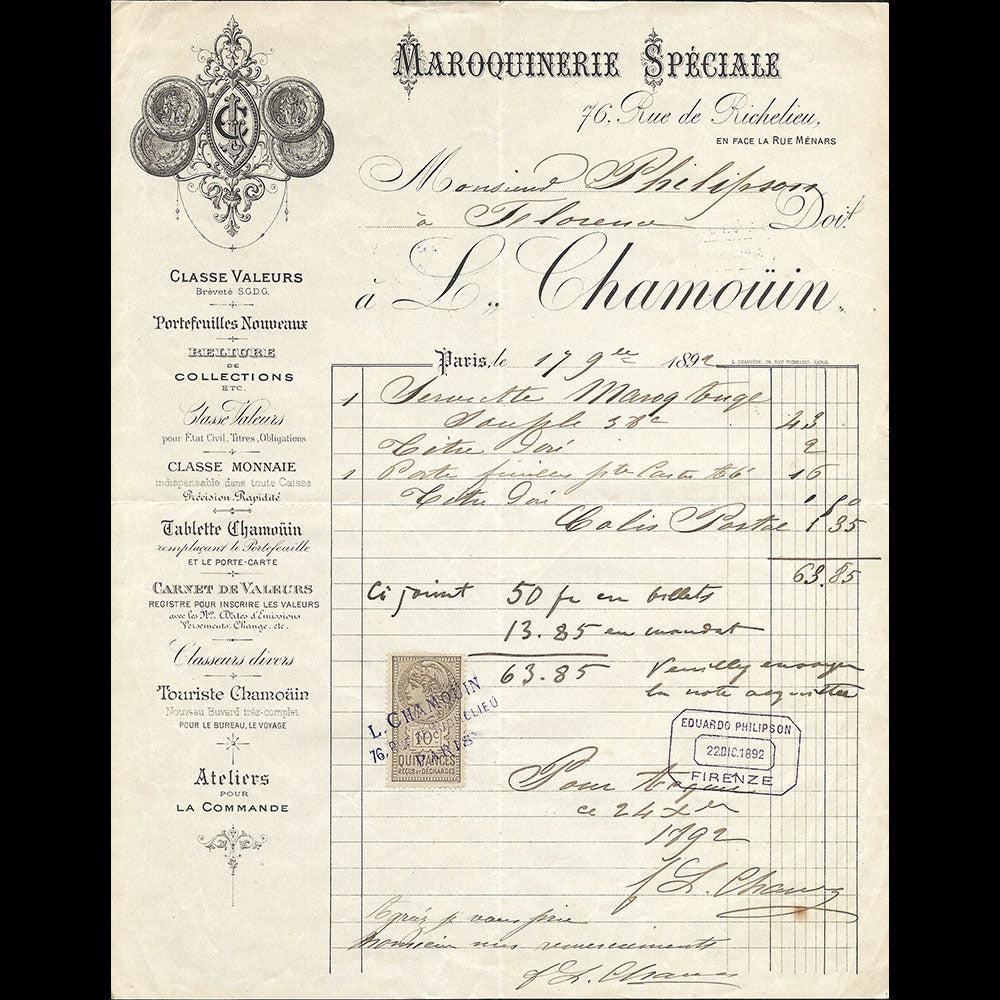 MAROQUINERIE SPÉCIALE
76, Rue de Richelieu,
EN FACE LA RUE MÉNARS
Monsieur Philipson
à Florence Doit
à L. Chamoüin.
CLASSE VALEURS
Breveté S.G.D.G.
Portefeuilles Nouveaux
RELIURE
DE
COLLECTIONS
ETC.
Classe Valeurs
pour Etat Civil, Titres, Obligations
CLASSE MONNAIE
indispensable dans toute Caisse
Précision-Rapidité
Tablette Chamoüin
remplaçant le Portefeuille
ET LE PORTE-CARTE
CARNET DE VALEURS
REGISTRE POUR INSCRIRE LES VALEURS
avec les Nos, Dates d'Emissions
Versements, Change, etc.
Classeurs divers
Touriste Chamoüin
Nouveau Buvard très-complet
POUR LE BUREAU, LE VOYAGE
Ateliers
POUR
LA COMMANDE
Paris, le 17 9bre 1892
L. CHAMOÜIN, 76, RUE RICHELIEU, PARIS
1 Serviette Maroq
Souple 43
Titre Doré 2
1 Porte feuilles 16
Titre Doré 1 50
Colis Postal 1 35
63.85
Ci joint 50 fr en billets
13.85 en mandat
63.85 Veuillez envoyer
la note acquittée
L. CHAMOÜIN
76, RUE RICHELIEU
PARIS
10c
QUITTANCES
REÇUS ET DÉCHARGES
EDUARDO PHILIPSON
22.DIC.1892
FIRENZE
Pour acquit
ce 24 Xbre
1892
L. Chamoüin
Agréez je vous prie
Monsieur mes remerciements
L. Chamoüin